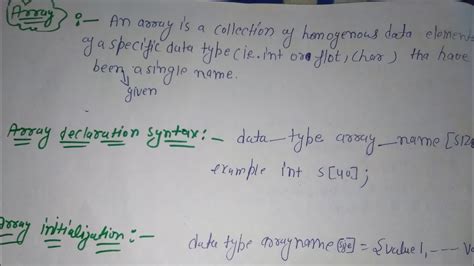 Array :- An array is a collection of homogenous data elements
of a specific data type (ie. int or flot, char) tha have
been a single name.
given
Array declaration syntax :- data_type array_name [siz
example int s[40];
Array initialization :- data type arrayname [size] = {value1, ---- v